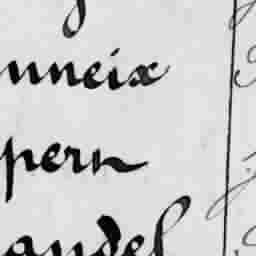 nneix
pern
andel